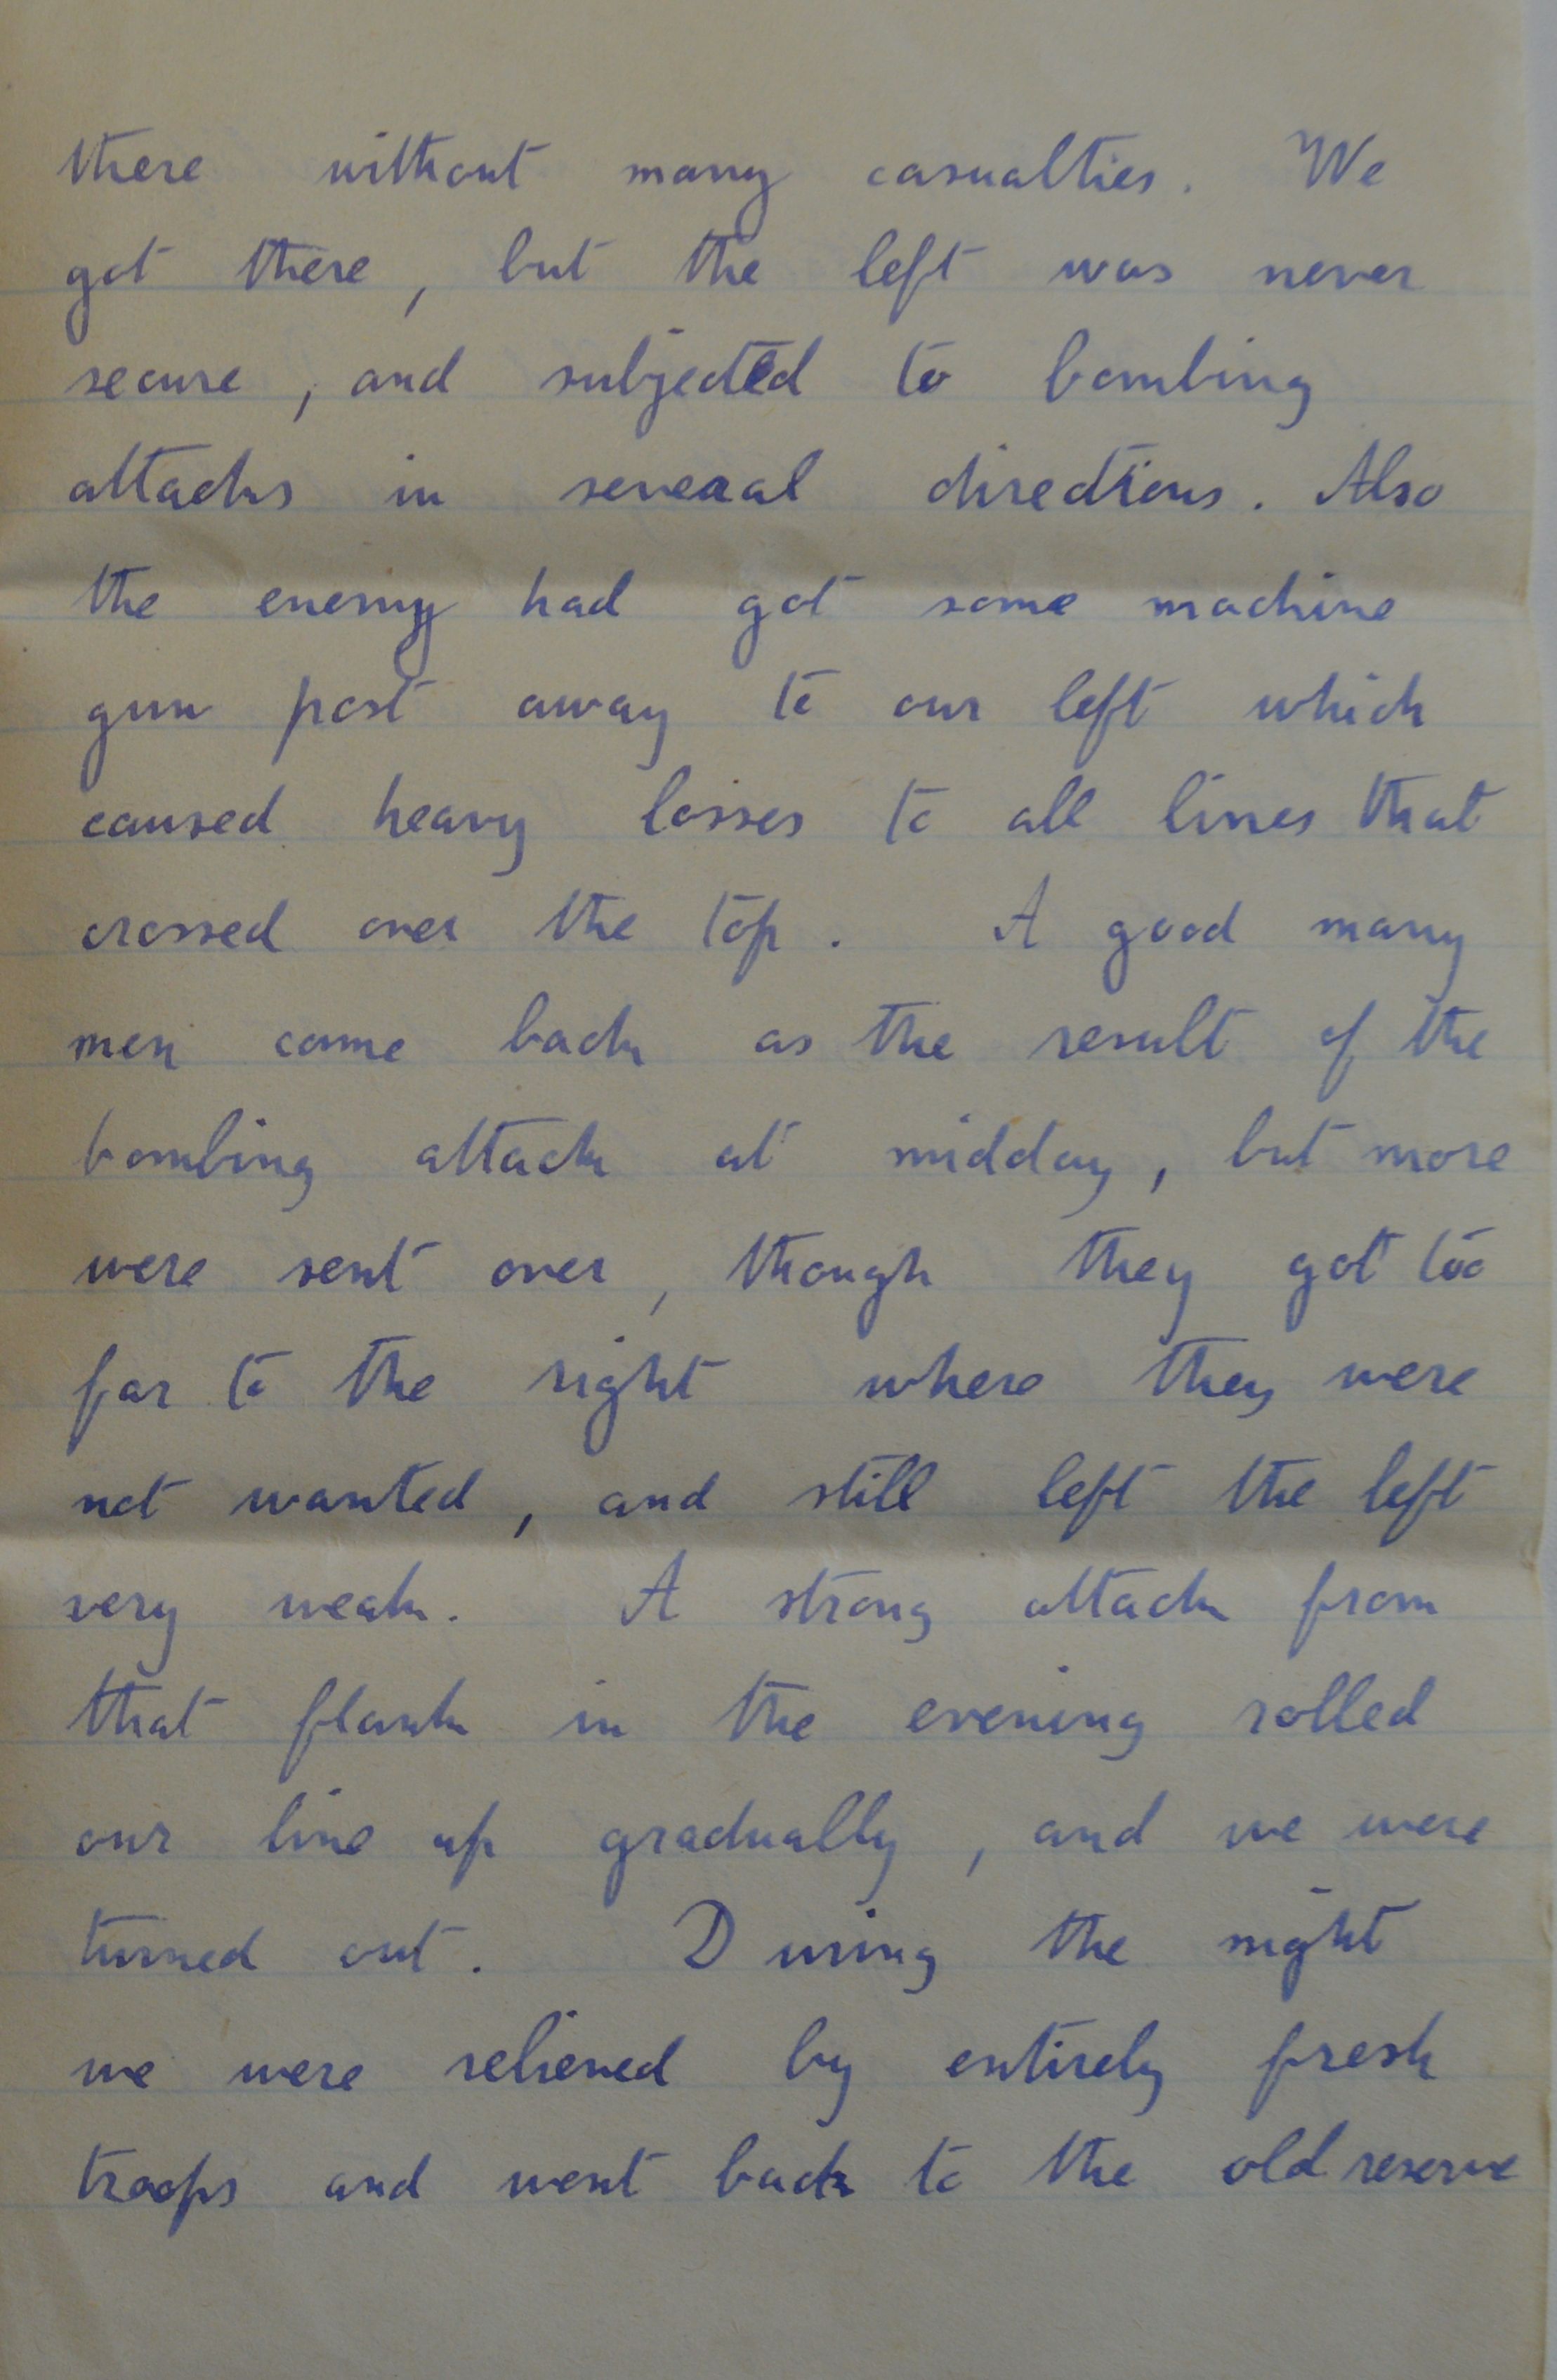 there without many casualties. We
got there, but the left was never
secure, and subjected to bombing
attacks in several directions. Also
the enemy had got some machine
gun post away to our left which
caused heavy losses to all lines that
crossed over the top. A good many
men came back as the result of the
bombing attack at midday, but more
were sent over, though they got too
far to the right where they were
not wanted, and still left the left
very weak. A strong attack from
that flank in the evening rolled
our line up gradually, and we were
turned out. During the night
we were relieved by entirely fresh
troops and went back to the old reserve